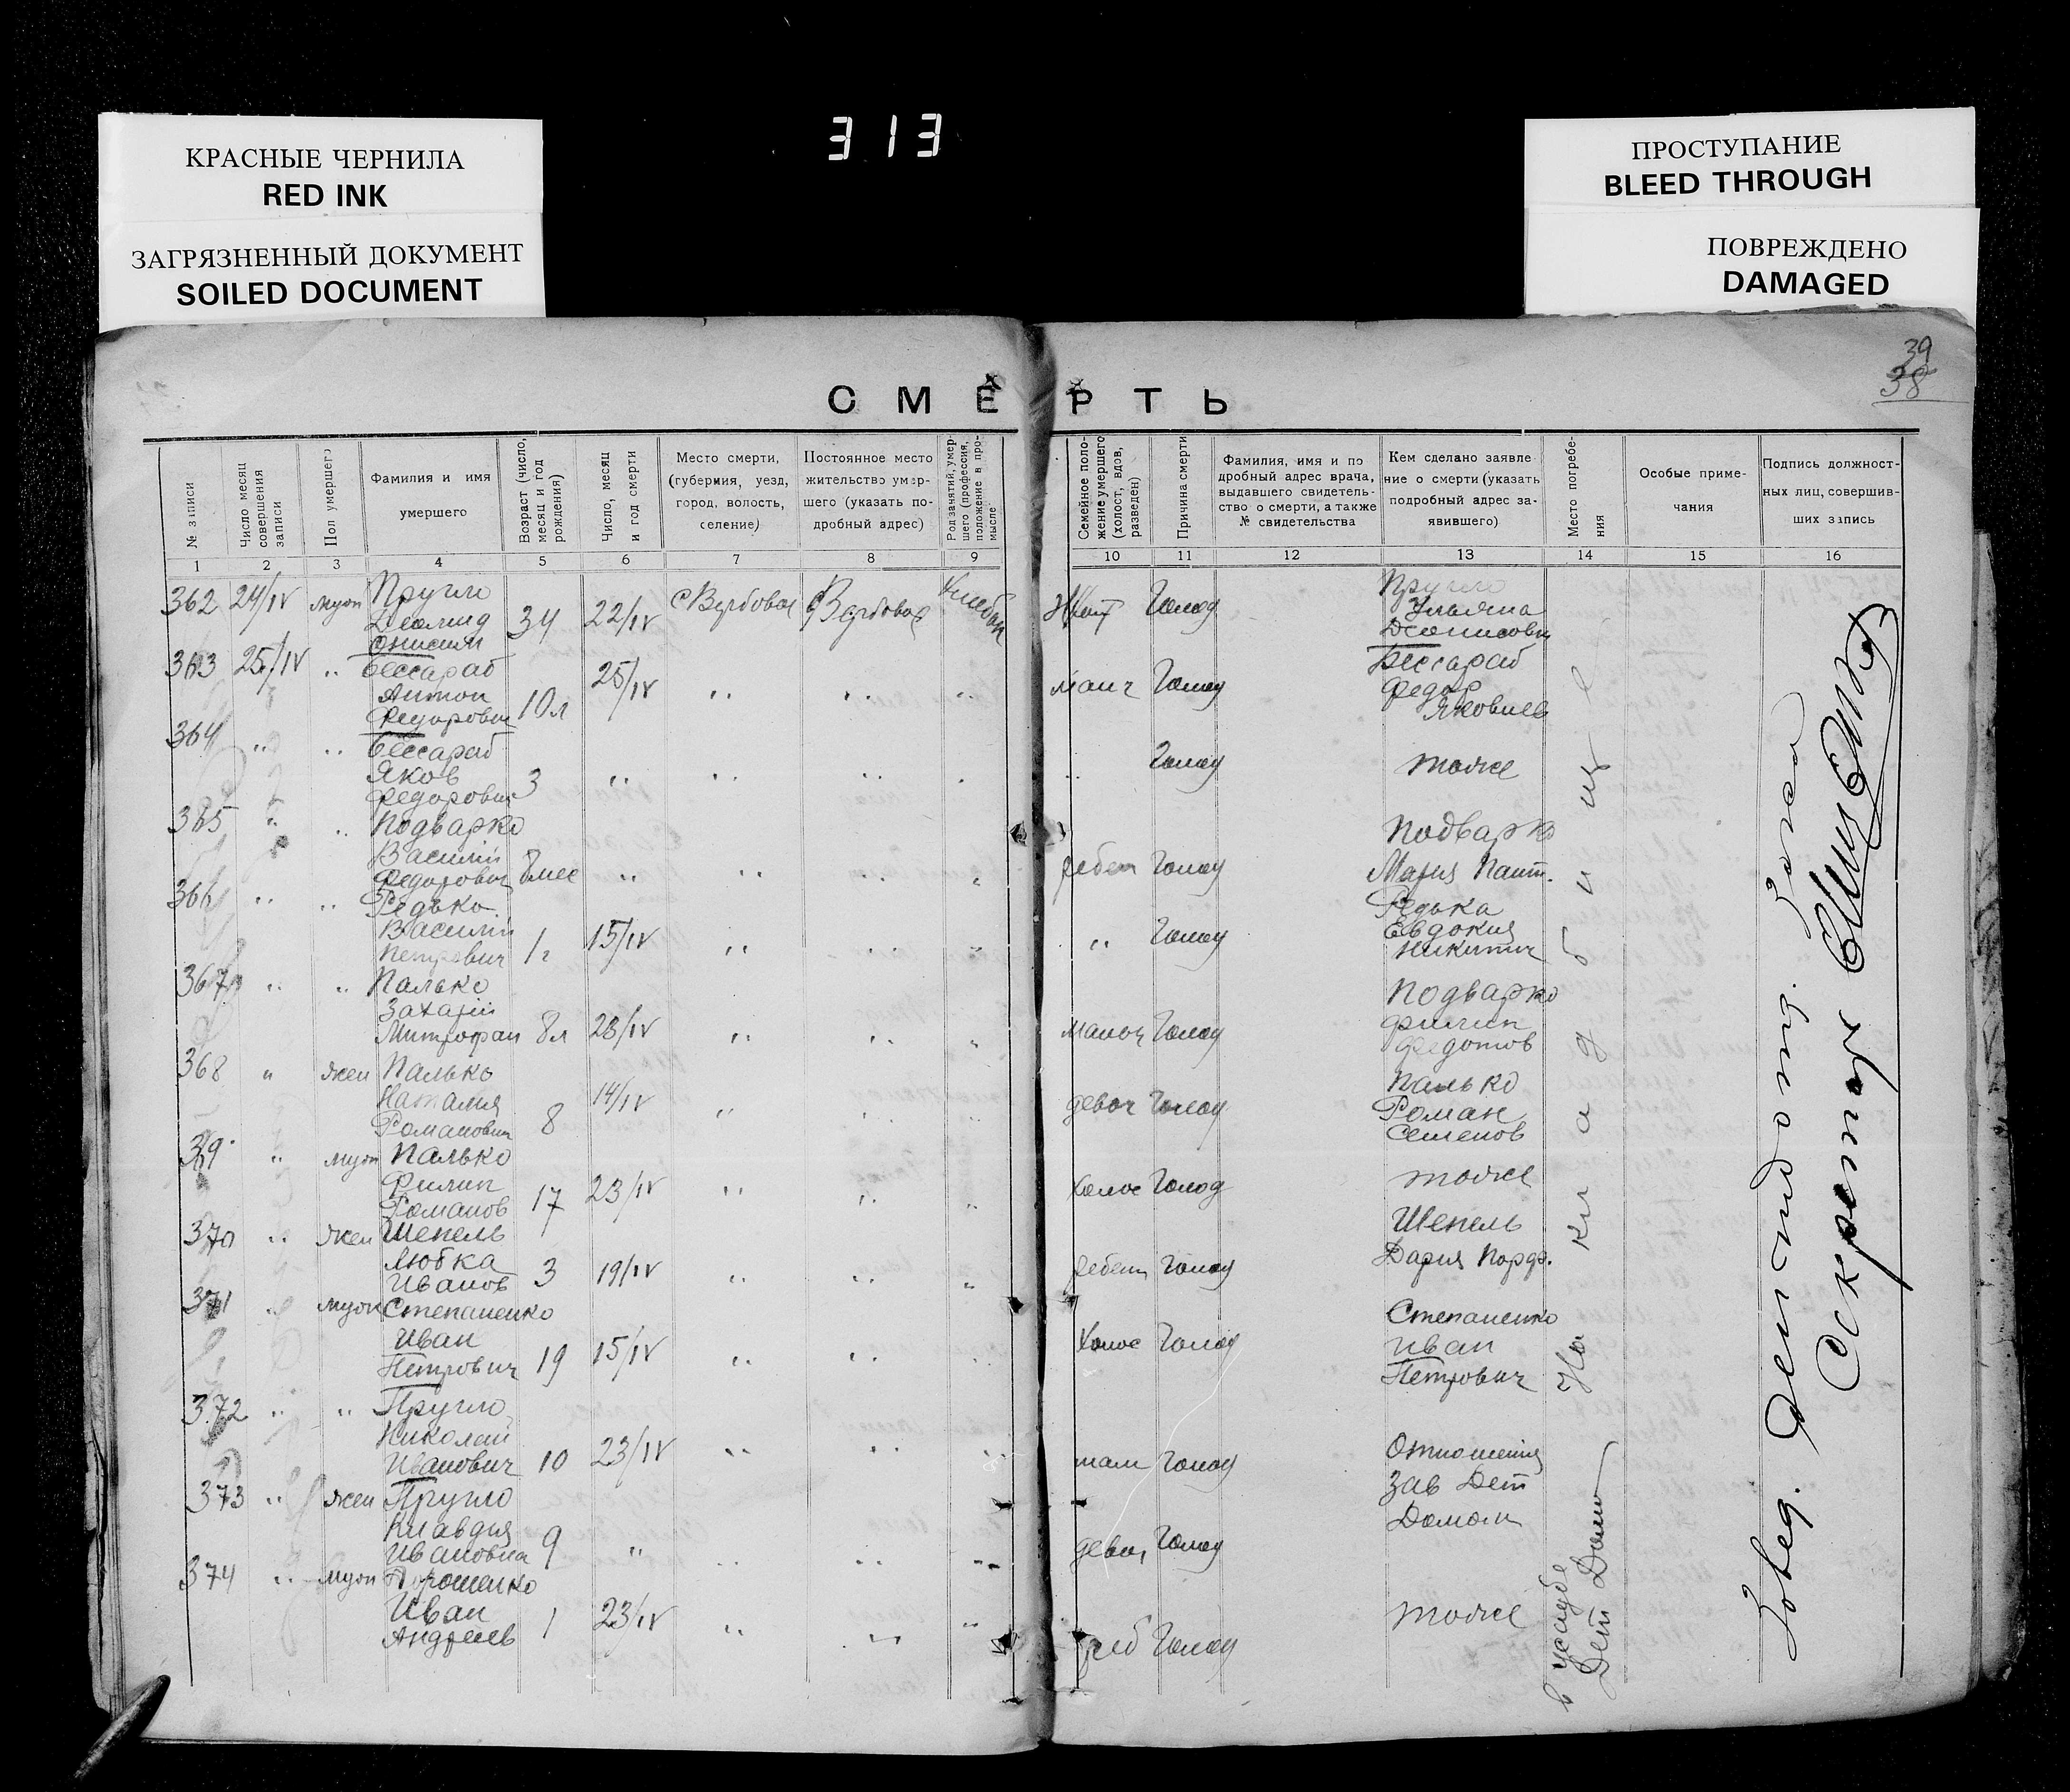 КРАСНЫЕ ЧЕРНИЛА
RED INK
ЗАГРЯЗНЕННЫЙ ДОКУМЕНТ
SOILED DOCUMENT
313
ПРОСТУПАНИЕ
BLEED THROUGH
ПОВРЕЖДЕНО
DAMAGED
39
38
СМЕРТЬ
№ записи
Число месяц совершения записи
Пол умершего
Фамилия и имя умершего
Возраст (число, месяц и год рождения)
Число, месяц и год смерти
Место смерти, (губерния, уезд, город, волость, селение)
Постоянное место жительство умершего (указать подробный адрес)
Род занятий, умершего (профессия, положение в промысле
Семейное положение умершего (холост, вдов, разведен)
Причина смерти
Фамилия, имя и подробный адрес врача, выдавшего свидетельство о смерти, а также № свидетельства
Кем сделано заявление о смерти (указать подробный адрес заявившего)
Место погребения
Особые примечания
Подпись должностных лиц, совершивших запись
1 2 3 4 5 6 7 8 9 10 11 12 13 14 15 16
362 24/IV муж Пругло 34 22/IV с Вербовая с Вербовая Голод Пругло
Ульяна
363 25/IV " Бессараб Антон Федорович 10л 25/IV " " " Голод Бессараб Федор Яковлев
364 " " Бессараб Яков Федорович 3 " " " Голод тоже
365 " " Подварко Василий Федорович 8мес " " " " ребен Голод Подварко Мария Пант.
366 " " Редько Василий Петрович 1г 15/IV " " " " Голод Редька Евдокия Никитич
367 " " Палько Захарий Митрофан 8л 23/IV " " " Голод Подварко Филип Федотов
368 " жен Палько Наталия Романовн 8 14/IV " " " девоч Голод Палько Роман Семенов
369 " муж Палько Филип Романов 17 23/IV " " " холос Голод тоже
370 " жен Шепель Любка Иванов 3 19/IV " " " ребен Голод Шепель Дария Порф.
371 " муж Степаненко Иван Петрович 19 15/IV " " " Холос Голод Степаненко Иван Петрович
372 " " Пругло Николай Иванович 10 23/IV " " " Голод Отношения Зав Дет Домом
373 " жен Пругло Клавдия Ивановна 9 " " " " девоч Голод
374 " муж Порошенко Иван Андреев 1 23/IV " " " реб Голод тоже
На кладбище
в усадбе
Дет Дома
Секретарь